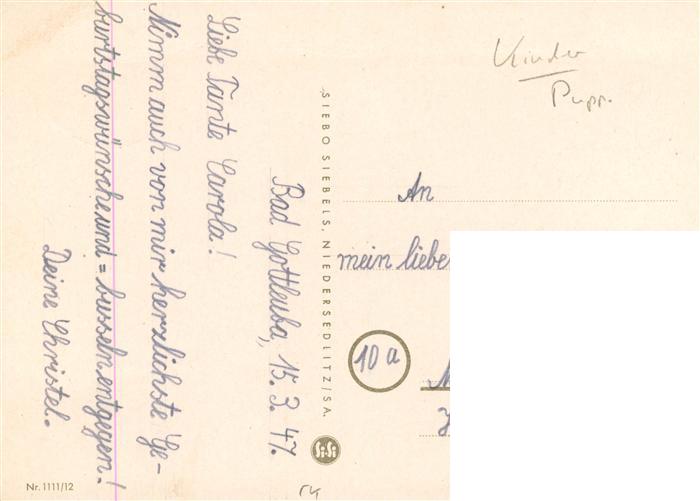 Bad Gottleuba, 15. 3. 47.
Liebe Tante Carola!
Nimm auch von mir herzlichste Ge-
burtstagswünsche und = busseln entgegen!
Deine Christel.
SIEBO SIEBELS, NIEDERSEDLITZ/SA.
SiSi
Kinder
Pupp.
An
mein liebe
10a
Nr. 1111/12